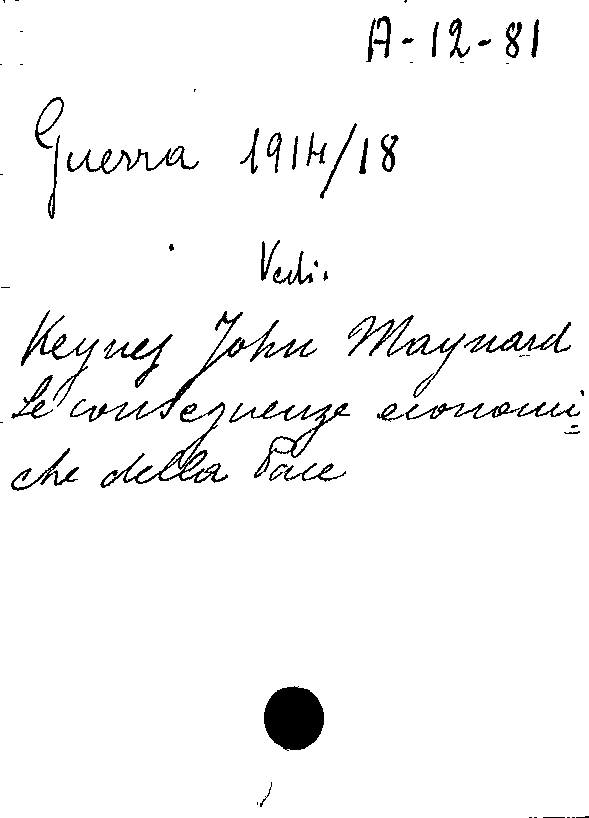 A-12-81
Guerra 1914/18
Vedi.
Keynes John Maynard
Le conseguenze economi=
che della Pace